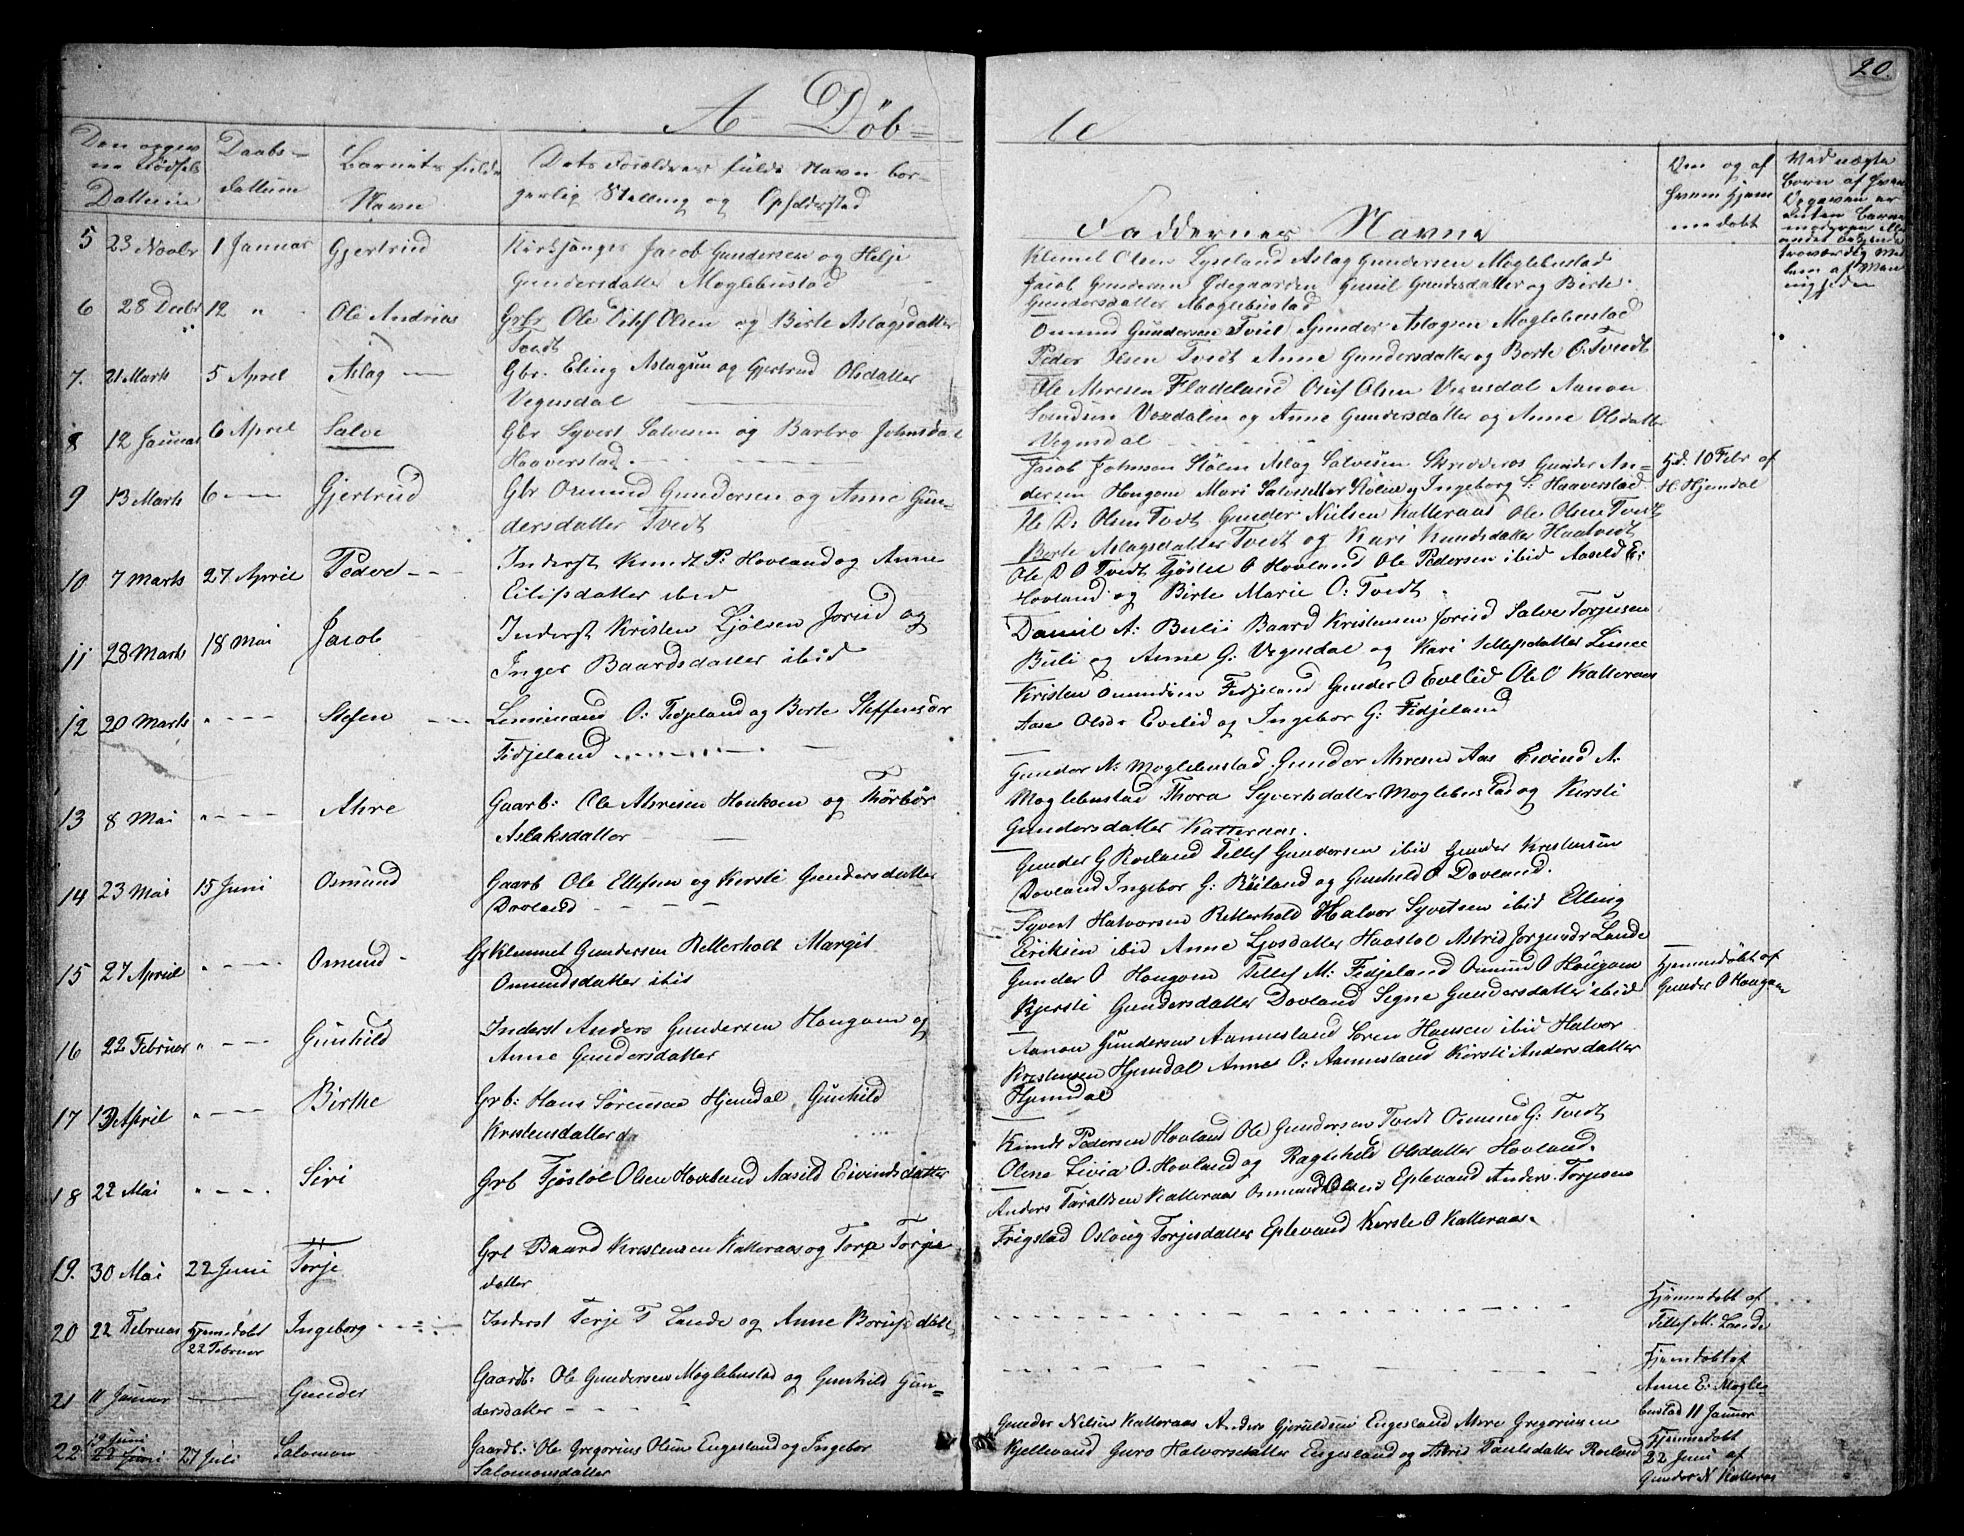 20.
A Døb=
te
Den opgiv
ne Fødsels
Dattum
Daabs-
dattum
Barnets fulde
Navn
Dets Forældres fulde Navn bor-
gerlig Stelling og Opholdsstad
Faddernes Navne
Om og af
hvem hjem
medøbt
Ved uægte
Børn af hvem
Opgaven er
uden Barne
moderen eller
andet bekjendt
troværdig Med
lem af Men
nigheden
5 23 Novbr 1 Januar Gjertrud
Kirksjanger Jacob Gundersen og Helje
Gundersdatter Moglebustad
Klemet Olsen Lyseland Aslag Gundersen Moglebustad
Jacob Gundersen Ødegaarden Gunil Gundersdatter og Birte
Gundersdatter Moglebustad
6 28 Decbr 12 " Ole Andrias
Grbr Ole Ditlef Olsen og Birte Aslagsdatter
Tvedt
Osmund Gundersen Tveit Gunder Aslagsen Moglebustad
Peder Olsen Tvedt Anne Gundersdatter og Berte O. Tvedt
7. 21 Marts 5 Aprel Aslag
Gbr. Eling Aslagsen og Gjertrud Olsdatter
Vegusdal
Ole Ahresen Fladeland Oluf Olsen Vegusdal Aanon
Svendsen Voxdalen og Anne Gundersdatter og Anne Olsdatter
Vegusdal
8 12 Januar 6 Aprel Salve
Gbr Syvert Salvesen og Barbro Johnsdat
Haaverstad
Jacob Johnsen Stølen Aslag Salvesen Skredderos Gunder An-
dersen Hougom Mari Salvesdatter Stølen og Ingeborg S: Haaverstad
Hjd. 10 Febr af
H. Hjemdal
9 13 Marts 6 Gjertrud
Gbr Osmund Gundersen og Anne Gun-
dersdatter Tvedt
Ole D. Olsen Tvedt Gunder Nielsen Katteraas Ole Olsen Tvedt
Berte Aslagsdatter Tvedt og Kari Knudsdatter Haatvedt
10 7 Marts 27 April Peder
Inderst Knudt P: Hovland og Anne
Eilifsdatter ibid
Ole D O Tvedt Fjøstel O Hovland Ole Pedersen ibid Aasild E:
Hovland og Birte Marie O: Tvedt
11 28 Marts 18 Mai Jacob
Inderst Kristen Ljølsen Jorid og
Inger Baardsdatter ibid
Daniel A: Bulii Baard Kristensen Jorid Salve Torjusen
Buli og Anne G: Vegusdal og Kari Tellefsdatter
12 20 Marts " Stefen
O: Fidjeland og Berte Steffensdr
Fidjeland
Kristen Omundsen Fidjeland Gunder O Evelid Ole O Katteraas
Aase Olsdr Evelid og Ingebor G: Fidjeland
13 8 Mai " Ahre
Gaarb: Ole Ahresen Houkom og Thorbør
Aslaksdatter
Gunder N: Moglebustad Gunder Ahresen Aas Eivind A.
Moglebustad Thora Syvertsdatter Moglebustad og Kirsti
Gundersdatter Katteraas.
14 23 Mai 15 Juni Osmund
Gaarb Ole Ellefsen og Kirsti Gundersdatter
Dovland
Gunder G Roiland Tellef Gundersen ibid Gunder Kristensen
Dovland Ingebor G: Roiland og Gunhild O Dovland.
15 27 Apriil " Omund
Gr Klemmet Gundersen Retterholt Margit
Omundsdatter ibid
Syvert Halvorsen Retterhold Halvor Syvetsen ibid Elling
Eiriksen ibid Anne Ljosdatter Haastøl Astrid Jorgendr Lande
16 22 Februar " Gunhild
Inderst Anders Gundersen Hougom og
Anne Gundersdatter
Gunder O Hougom Tellef M: Fidjeland Osmund O Hougom
Kjersti Gundersdatter Dovland Segne Gundersdatter ibid
Hjemmedøbt af
Gunder O Hougom
17 13 April " Birthe
Grb: Hans Sørensen Hjemdal Gunhild
Kristensdatter do
Aanon Gundersen Aanneland Søren Hansen ibid Halvor
Kristensen Hjemdal Anne O: Aanneland Kirsti Andersdatter
Hjemdal
18 22 Mai " Siri
Grb Fjøstøl Olsen Hovland Aasild Eivindsdatter
Knudt Pedersen Hovland Ole Gundersen Tvedt Osmund G: Tvedt
Olene Livia O. Hovland og Ragnhild Olsdatter Hovland.
19. 30 Mai 22 Juni Torje
Grb Baard Kristensen Katteraas og Torje Torjes
datter
Anders Taraldsen Katteraas Osmund Olsen Eplevand Anders Torjesen
Frigstad Oslaug Torjesdatter Eplevand Kirste O Katteraas.
20 22 Februar Hjemdøbt
22 Februar Ingeborg
Inderst Terje T Lande og Anne Borufsdatt
Hjemmedøbt af
Tellef M. Lande
21 11 Januar Gunder
Gaardb: Ole Gundersen Moglebustad og Gunhild Gun-
dersdatter
Hjemdøbt af
Anne E. Mogle-
bustad 11 Januar
22 19 Juni
22 Juni 27 Juli Salomon
Gaardb: Ole Gregorius Olsen Engesland og Ingebor
Salomonsdatter
Gunder Nilsen Katteraas Anders Gjeruldsen Engesland Ahre Gregoriusen
Kjellevand Guro Halvorsdatter Engesland og Astrid Taulsdatter Roiland
Hjemmedøbt
22 Juni af
Gunder N Katteraas